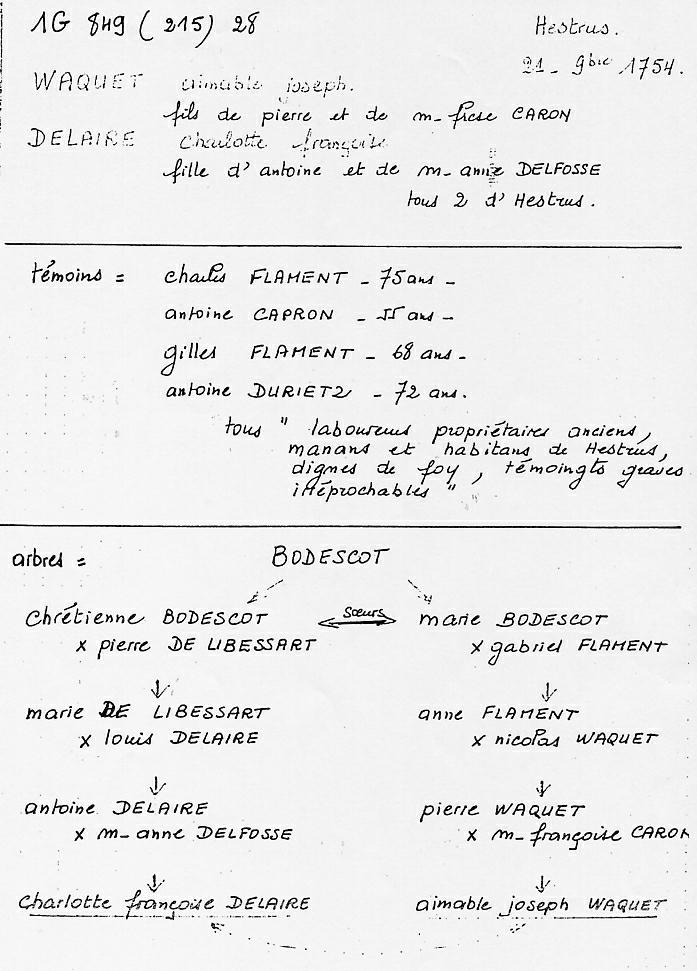 1G 849 (215) 28
Hestrus.
21 - 9bre 1754.
WAQUET aimable joseph.
fils de pierre et de m-frcse CARON
DELAIRE Charlotte françoise
fille d'antoine et de m-anne DELFOSSE
tous 2 d'Hestrus.
témoins = charles FLAMENT - 75 ans -
antoine CAPRON - 55 ans -
gilles FLAMENT - 68 ans -
antoine DURIETZ - 72 ans.
tous " laboureurs propriétaires anciens,
manans et habitans de Hestrus,
dignes de foy, témoingts graves
irréprochables "
arbres = BODESCOT
Chrétienne BODESCOT sœurs marie BODESCOT
x pierre DE LIBESSART x gabriel FLAMENT
marie DE LIBESSART anne FLAMENT
x louis DELAIRE x nicolas WAQUET
antoine DELAIRE pierre WAQUET
x m-anne DELFOSSE x m-françoise CARON
Charlotte françoise DELAIRE aimable joseph WAQUET